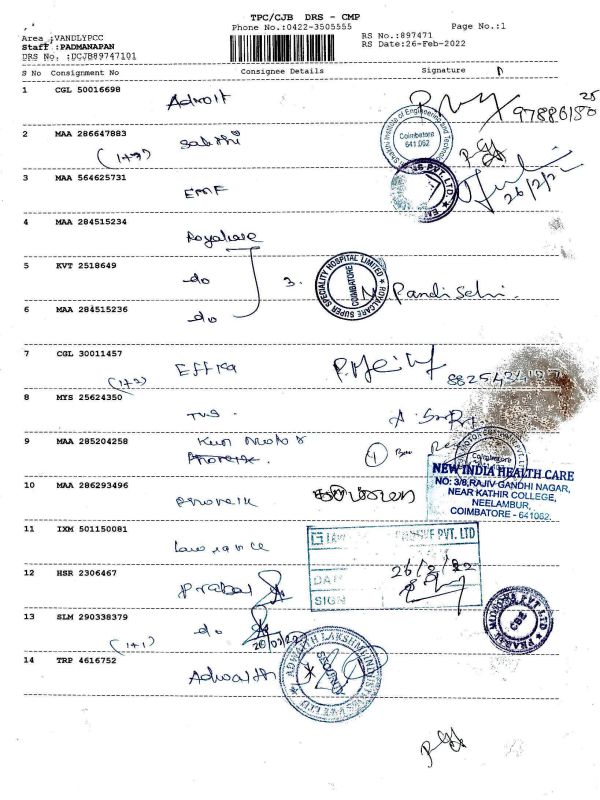 TPC/CJB DRS - CMP
Phone No.:0422-3505555
Page No.:1
Area :VANDLYPCC
Staff :PADMANAPAN
DRS No. :DCJB89747101
RS No.:897471
RS Date:26-Feb-2022
S No Consignment No Consignee Details Signature
1 CGL 50016698
Adroit
2 MAA 286647883
Sakthi
Coimbatore
641 062
3 MAA 564625731
EMF
26/2/22
4 MAA 284515234
Royalcare
5 KVT 2518649
do
3.
ROYALCARE SUPER SPECIALITY HOSPITAL LIMITED
COIMBATORE
Pandiselvi
6 MAA 284515236
do
7 CGL 30011457
(1+2)
Effika
8 MYS 25624350
TVS
9 MAA 285204258
Kun Motor
4
Coimbatore
NEW INDIA HEALTH CARE
NO: 3/8, RAJIV GANDHI NAGAR,
NEAR KATHIR COLLEGE,
NEELAMBUR,
COIMBATORE - 641062.
10 MAA 286293496
11 IXM 501150081
Lawrance
PVT. LTD
12 HSR 2306467
Prabal
26/2/22
SIGN
13 SLM 290338379
(1+1)
do
PRABAL MOTORS PVT LTD
CBE
14 TRP 4616752
Adwaith
ADWAITH LAKSHMI INDUSTRIES PVT LTD
SECURITY